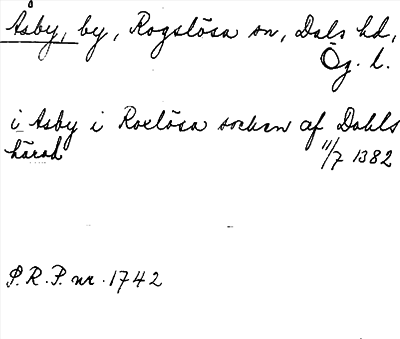 Åsby, by, Rogslösa sn, Dals hd,
Ög. l.
i Asby i Roxlösa socken af Dahls
härad 11/7 1382
P.R.P. nr. 1742